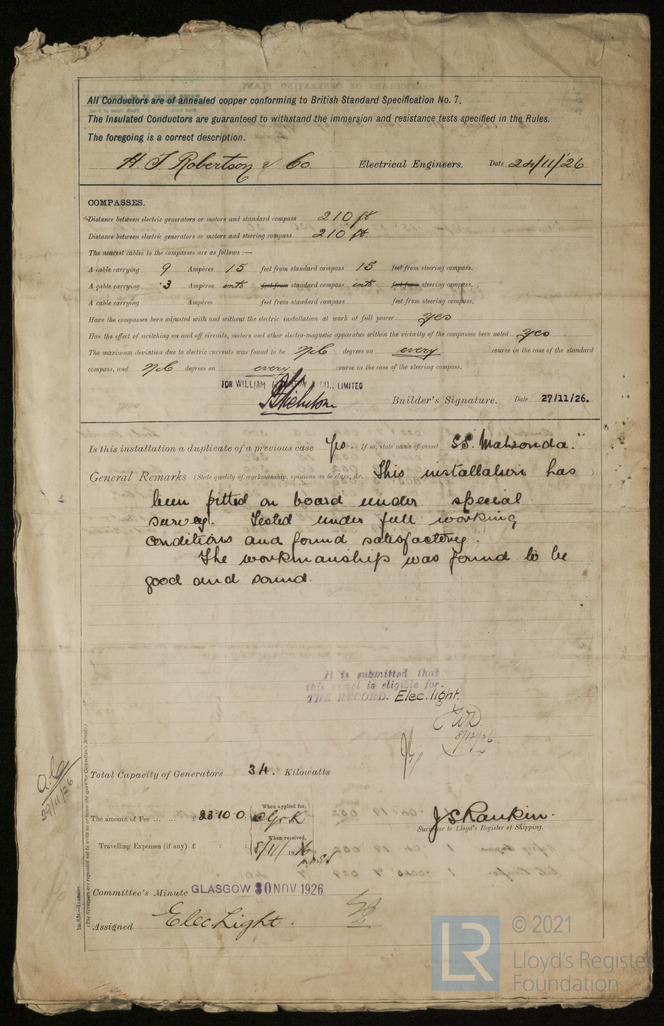 All Conductors are of annealed copper conforming to British Standard Specification No. 7.
The Insulated Conductors are guaranteed to withstand the immersion and resistance tests specified in the Rules.
The foregoing is a correct description.
H. J. Robertson & Co Electrical Engineers. Date 24/11/26
COMPASSES.
Distance between electric generators or motors and standard compass 210 ft
Distance between electric generators or motors and steering compass 210 ft.
The nearest cables to the compasses are as follows:—
A cable carrying 9 Ampères 15 feet from standard compass 15 feet from steering compass.
A cable carrying .3 Ampères into feet from standard compass into feet from steering compass.
A cable carrying Ampères feet from standard compass feet from steering compass.
Have the compasses been adjusted with and without the electric installation at work at full power yes
Has the effect of switching on and off circuits, motors and other electro-magnetic apparatus within the vicinity of the compasses been noted yes
The maximum deviation due to electric currents was found to be Nil degrees on every course in the case of the standard
compass, and Nil degrees on every course in the case of the steering compass.
FOR WILLIAM & CO., LIMITED
Builder's Signature. Date 27/11/26.
Is this installation a duplicate of a previous case Yes If so, state name of vessel S.S. "Matsonda."
General Remarks (State quality of workmanship, opinions as to class, &c. This installation has
been fitted on board under special
survey. Tested under full working
conditions and found satisfactory.
The workmanship was found to be
good and sound.
It is submitted that
this vessel is eligible for
THE RECORD. Elec. light.
8/12/26
Total Capacity of Generators 34. Kilowatts
The amount of Fee ... ... £ 23.10.0 When applied for,
J S Rankin.
Surveyor to Lloyd's Register of Shipping.
Travelling Expenses (if any) £ When received,
29/11/26
Committee's Minute GLASGOW 30 NOV 1926
Assigned Elec. Light.
LR
© 2021
Lloyd's Register
Foundation